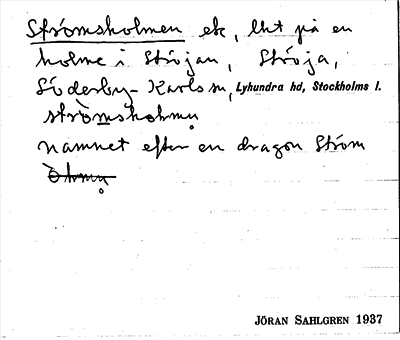 Strömsholmen ek, lht på en
holme i Ströjan, Ströja,
Söderby-Karls sn, Lyhundra hd, Stockholms l.
strò̤msho̤lmn̥
namnet efter en dragon Ström
JÖRAN SAHLGREN 1937